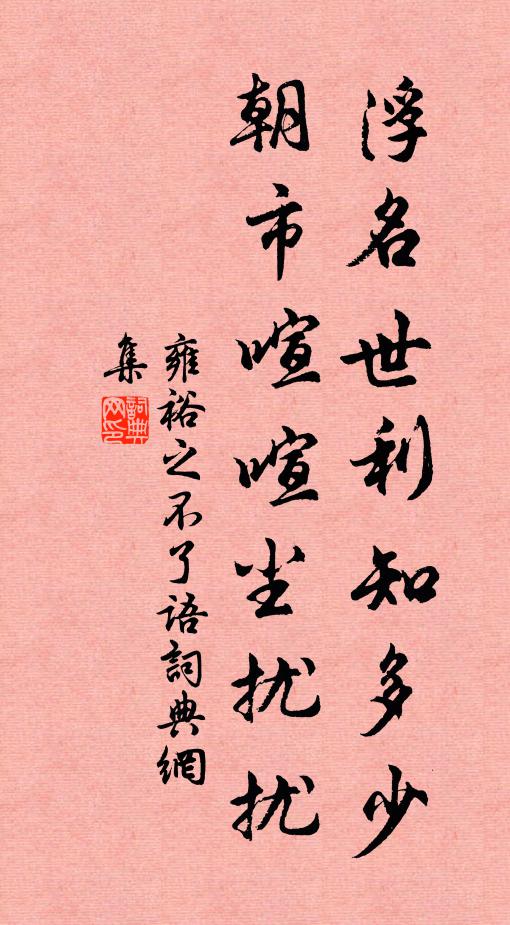 浮名世利知多少
朝市喧喧尘扰扰
雍裕之不了语詞典網
集
詞典
网印